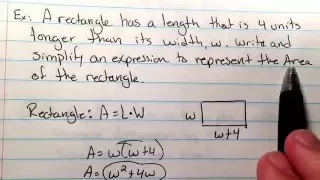 Ex: A rectangle has a length that is 4 units
longer than its width, w. Write and
simplify an expression to represent the Area
of the rectangle.
Rectangle: A=L·W
w
w+4
A=w(w+4)
A=(w²+4w)